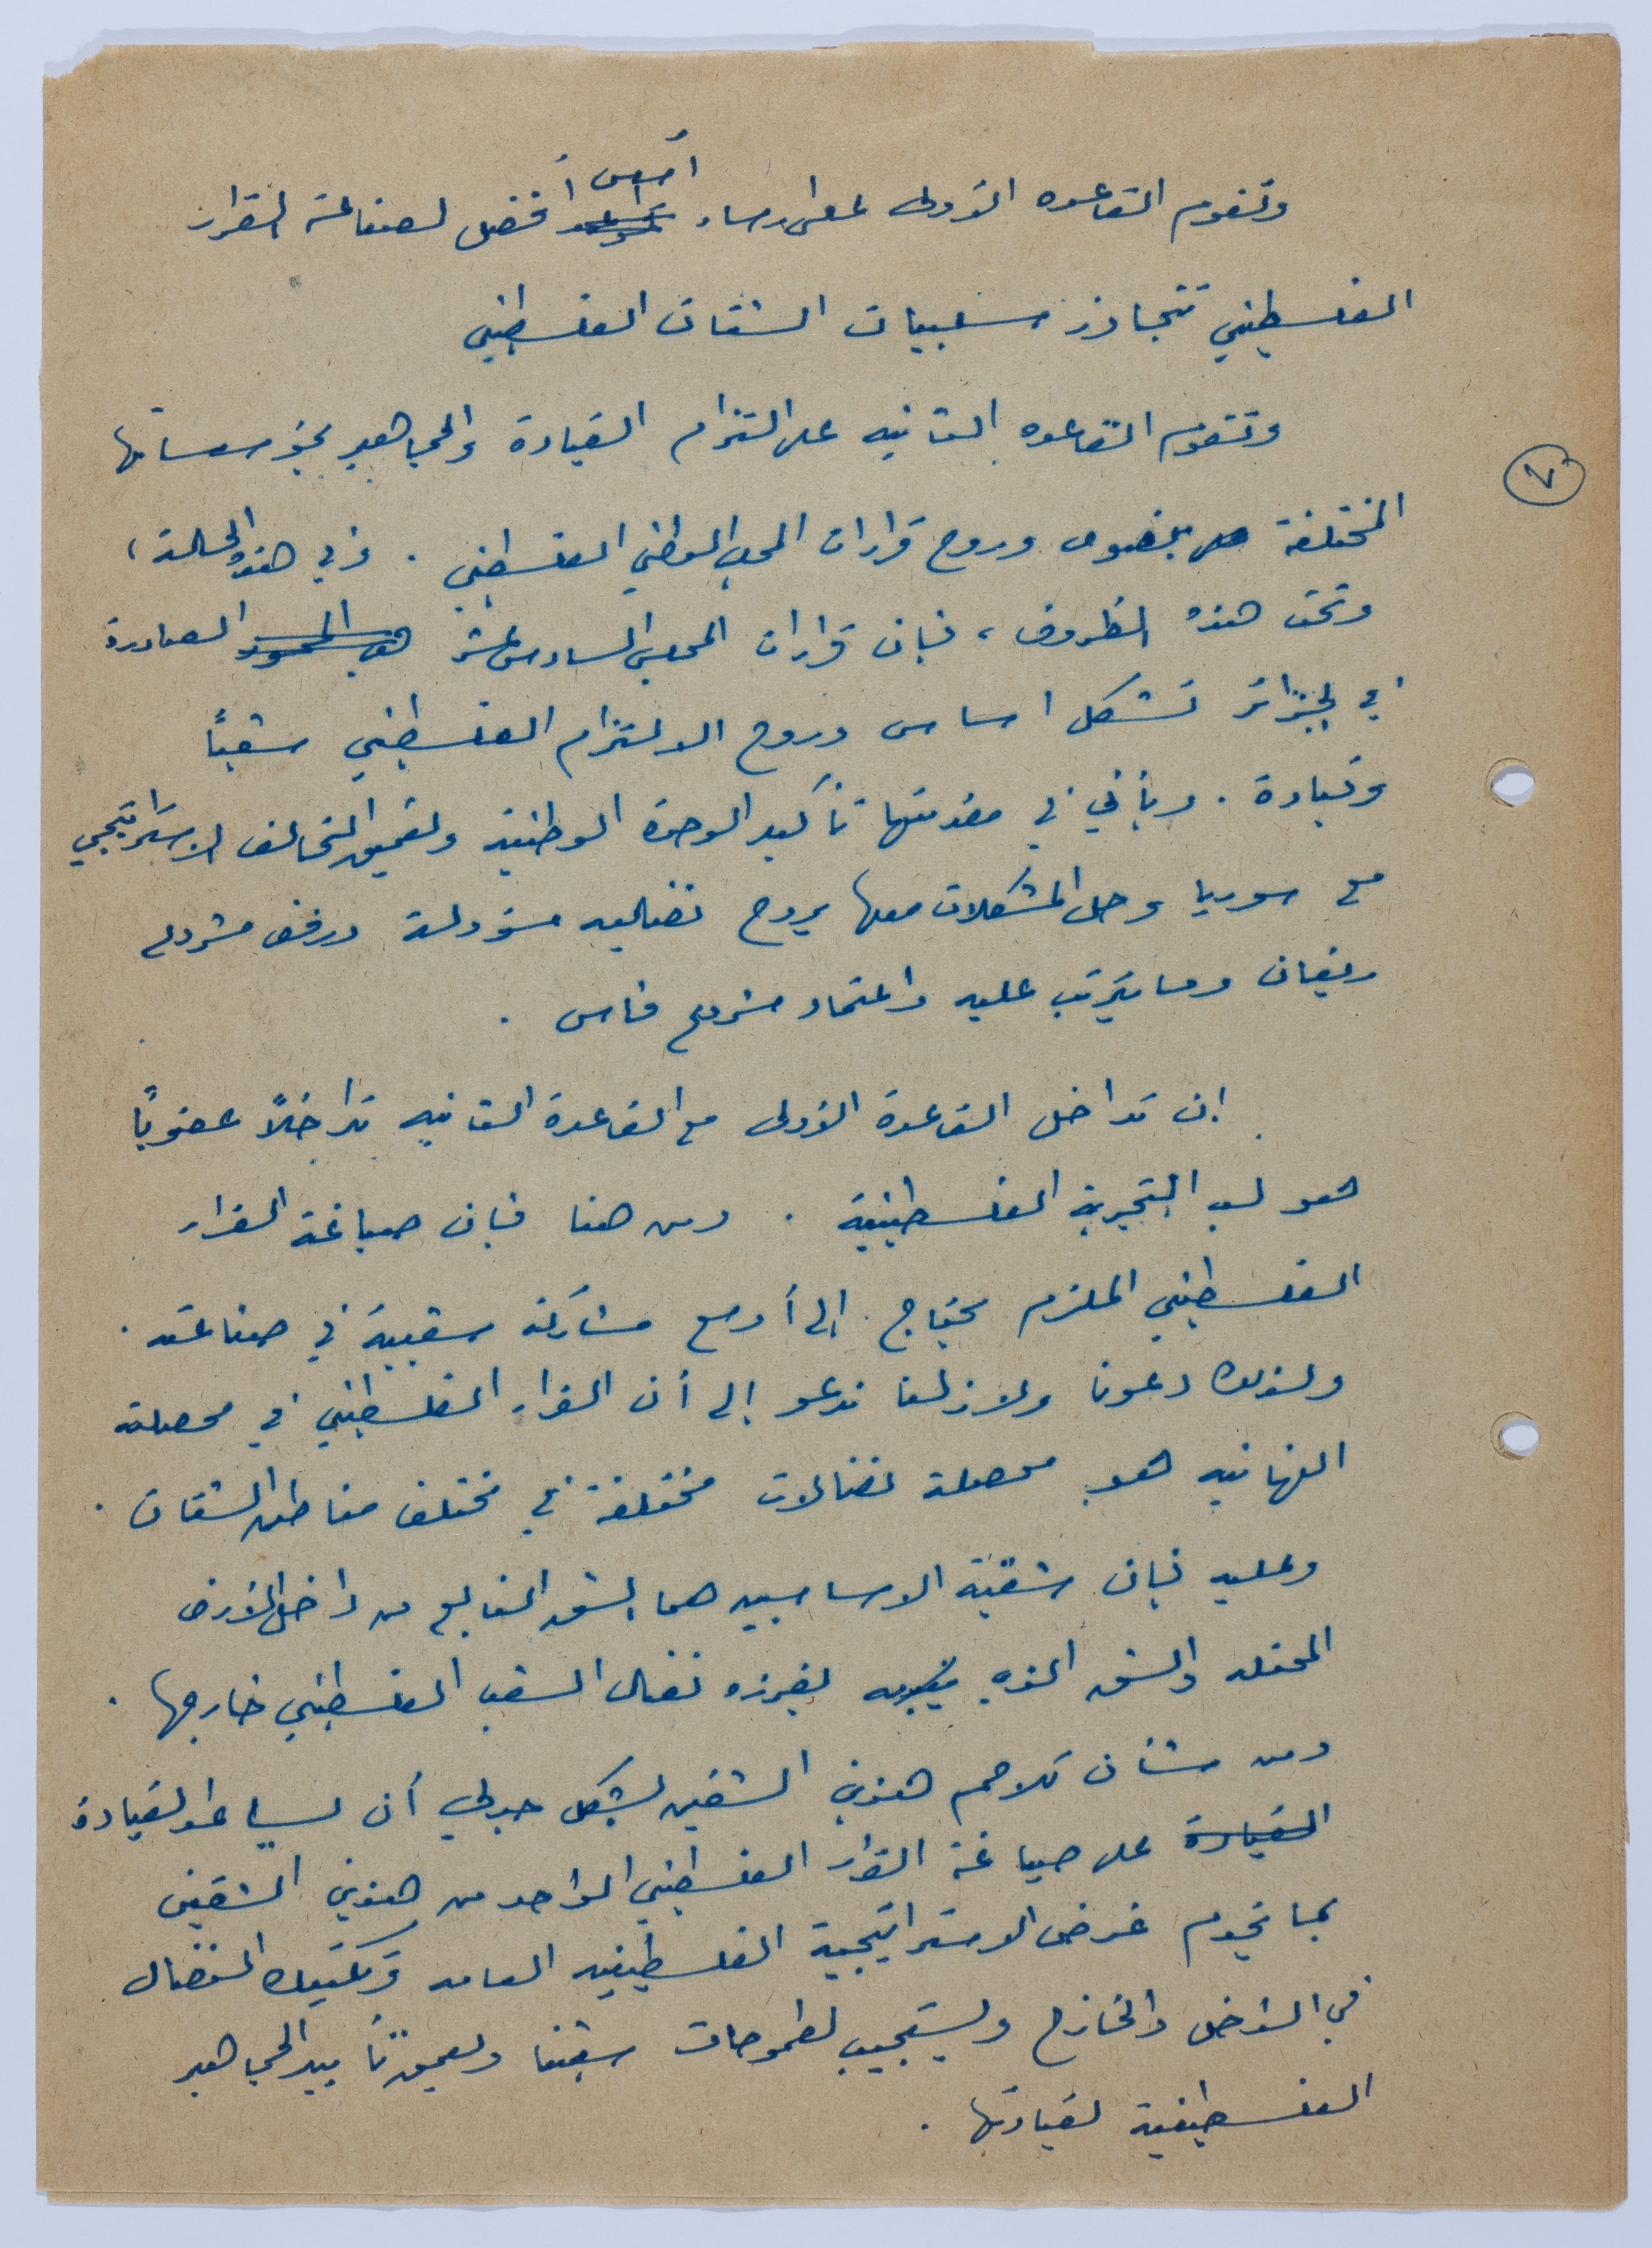 وتقوم القاعده الأولى على ارساء أسس أفضل لصناعة القرار
الفلسطيني تتجاوز سلبيات الشتات الفلسطيني
وتقوم القاعده الثانيه على التزام القيادة والجماهير بمؤسساتها
٧
المختلفة بنصوص وروح قرارات المجلس الوطني الفلسطيني . وفي هذه الحالة ،
وتحت هذه الظروف ، فإن قرارات المجلس السادس عشر الصادرة
في الجزائر تشكل اساس وروح الالتزام الفلسطيني شعباً
وقيادة . ويأتي في مقدمتها تأكيد الوحدة الوطنية وتعميق التحالف الاستراتيجي
مع سوريا وحل المشكلات معها بروح نضاليه مسؤولة ورفض مشروع
ريغان وما يترتب عليه واعتماد مشروع فاس .
إن تداخل القاعدة الأولى مع القاعدة الثانيه تداخلاً عضوياً
هو لب التجربة الفلسطينية . ومن هنا فإن صياغة القرار
الفلسطيني الملزم يحتاج إلى أوسع مشاركة شعبية في صناعته .
ولذلك دعونا ولا زلنا ندعو إلى أن القرار الفلسطيني في محصلته
النهائيه هو محصلة نضالات مختلفة في مختلف مناطق الشتات .
وعليه فإن شقيه الاساسيين هما الشق النابع من داخل الأرض
المحتله والشق الذي يفرزه نضال الشعب الفلسطيني خارجها .
ومن شأن تلاحم هذين الشقين بشكل جدلي أن يساعد القيادة
القيادة على صياغة القرار الفلسطيني الواحد من هذين الشقين
بما يخدم غرض الاستراتيجية الفلسطينيه العامه وتكتيك النضال
في الداخل والخارج ويستجيب لطموحات شعبنا ويعمق تأييد الجماهير
الفلسطينية لقيادتها .